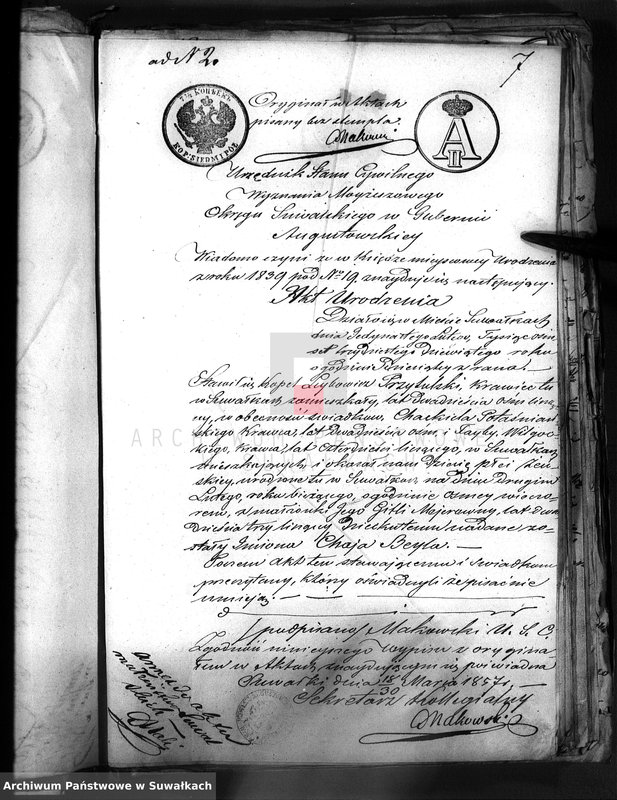 ad N 2.
7
7½ КОПѢЕКЪ
KOP. SIEDM I PÓŁ
A II
Oryginał w Aktach
pisany bez stempla.
Makowski
Urzędnik Stanu Cywilnego
Wyznania Mojżeszowego
Okręgu Suwalskiego w Gubernii
Augustowskiey
Wiadomo czyni że w księdze mieyscowey Urodzenia
z roku 1839 pod No 19. znayduje się następujący.
Akt Urodzenia
Działo się w Mieście Suwałkach
dnia Jedynastego Lutego, Tysiąc ośm
set trzydziestego dziewiątego roku
o godzinie dziesiątey z rana. –
Stawił się Kopel Leybowicz Przytulski, Krawiec tu
w Suwałkach zamieszkały, lat dwadzieścia ośm liczą-
cy, w obecności świadków, Chackiela
skiego Krawca, lat dwadzieścia ośm i Tayby,
kiego, Krawca, lat czterdzieści liczącego, w Suwałkach
mieszkających, i okazał nam dziecię płci żeń-
skiey, urodzone tu w Suwałkach, na dniu drugim
Lutego, roku bieżącego, o godzinie osmey wieczo-
rem, z małżonki Jego Gitli Mejerowny, lat dwa-
dzieścia trzy liczącey Dziecku temu nadane zo-
stały Imiona Chaja Beyla. —
Poczem akt ten stawającemu i świadkom
przeczytany, który oświadczyli że pisać nie
umieją —
(podpisano) Makowski U. S. C.
Zgodność ninieyszego wypisu z orygina-
łem w Aktach znaydującym się poświadcza
Suwałki dnia 18/30 Marca 1857 r.
Sekretarz Kollegialny
Makowski
Archiwum Państwowe w Suwałkach
ARCHIWUM PAŃSTWOWE